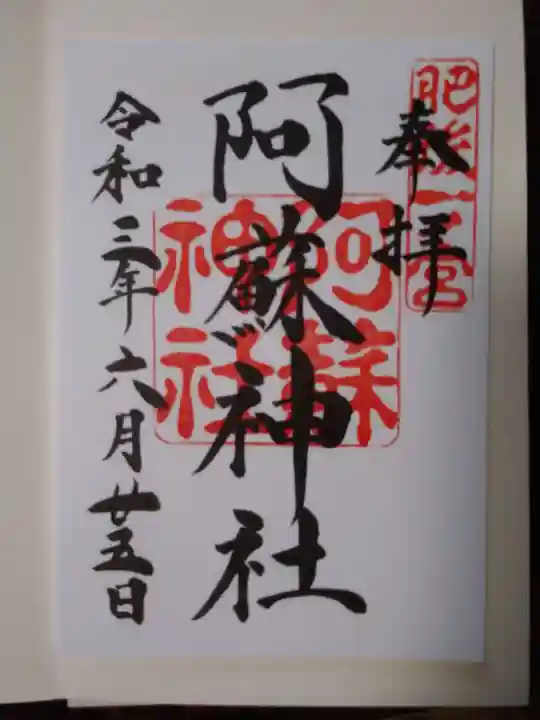 肥後一宮
奉拝
阿蘇神社
阿蘇神社
令和三年六月廿五日